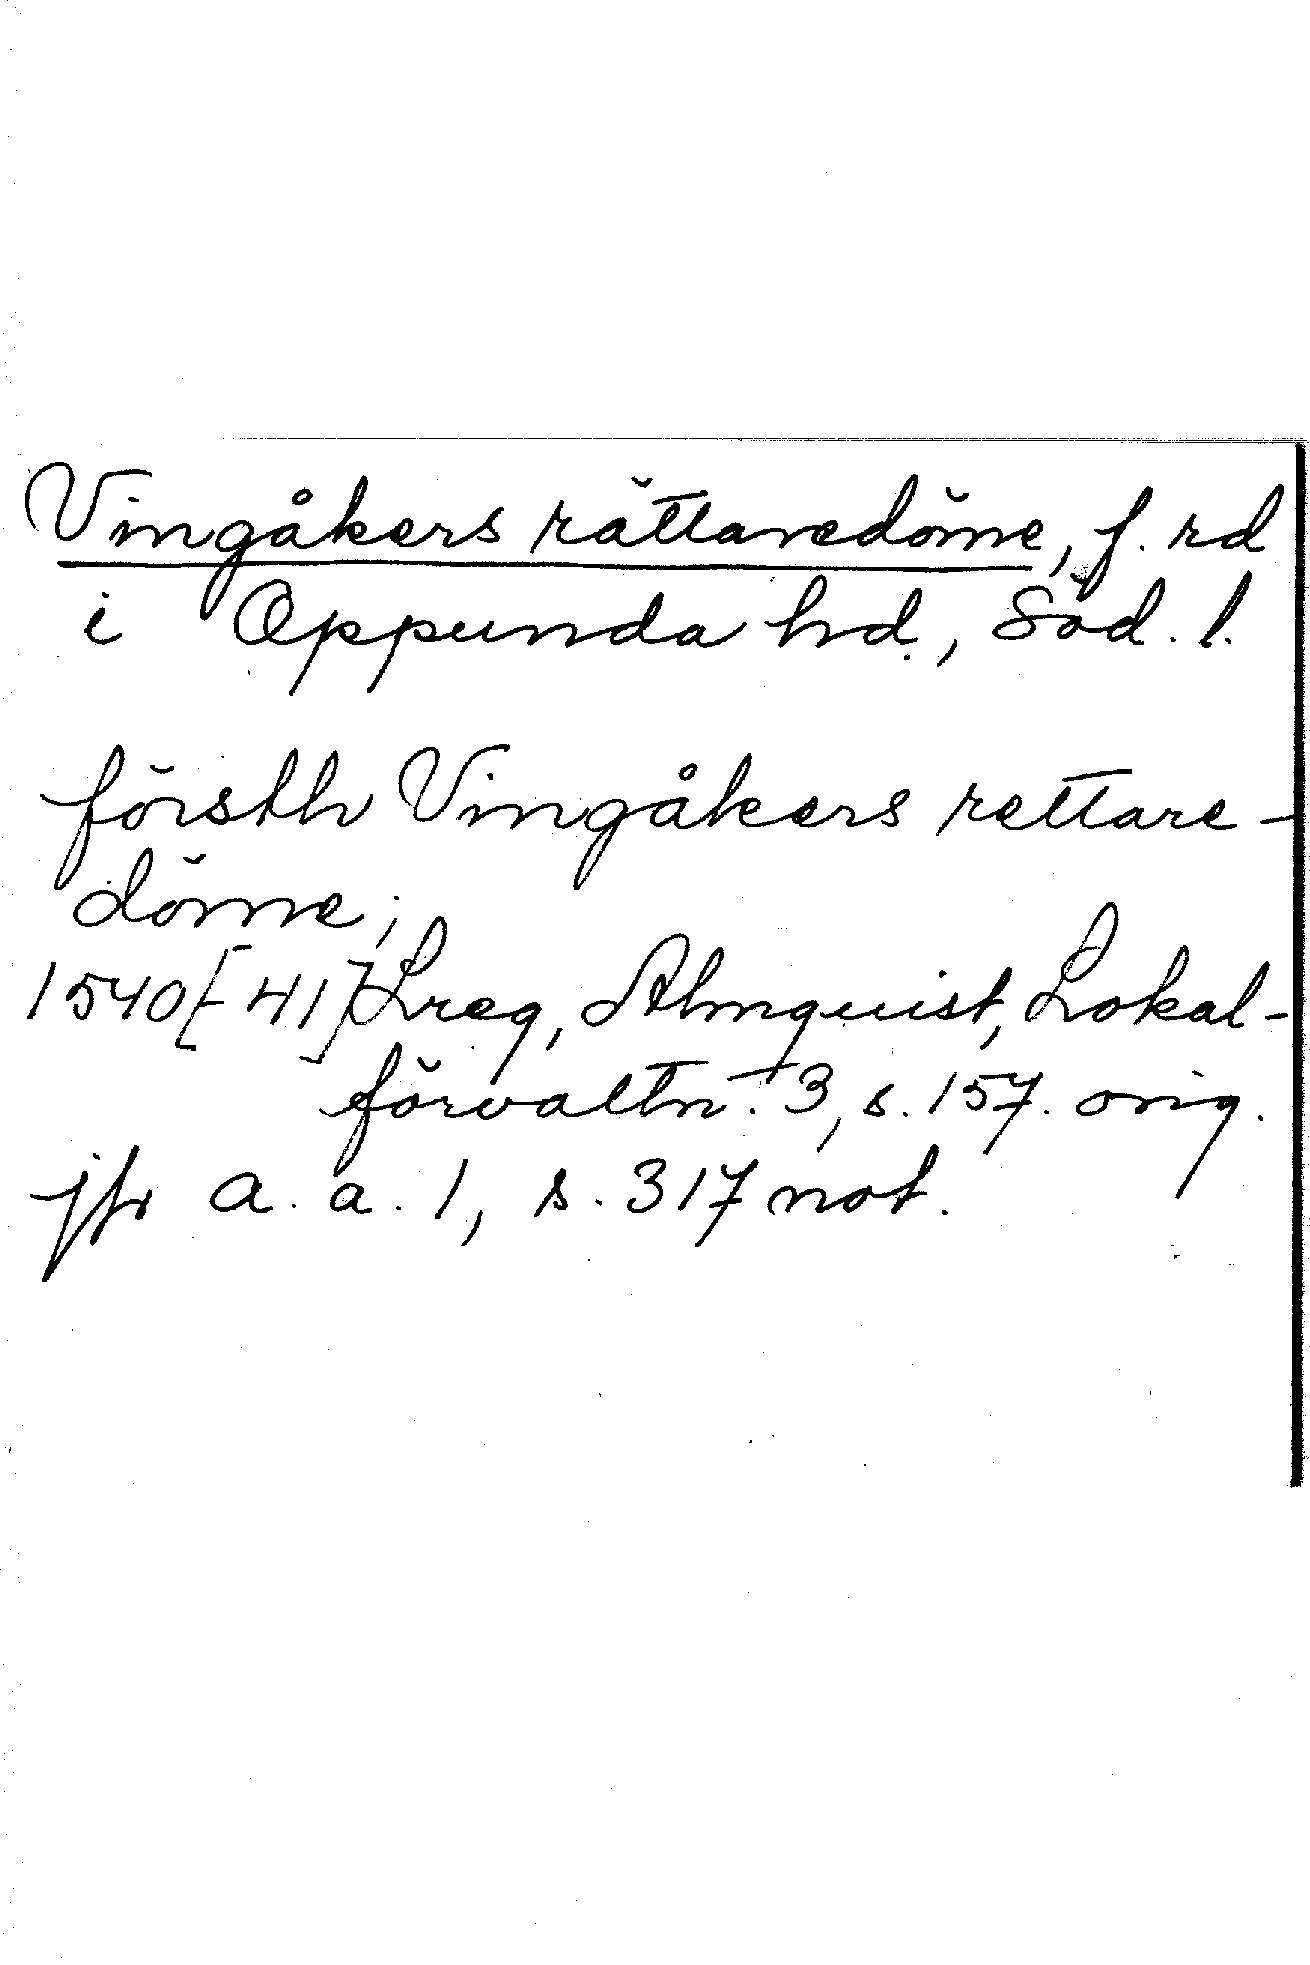 Vingåkers rättaredöme, f. rd
i Oppunda hd., Söd. l.
försth Vingåkers rettare-
döme;
1540[-41] Lreg, Almquist, Lokal-
förvaltn. 3, s. 157. orig.
jfr a. a. 1, s. 317 not.